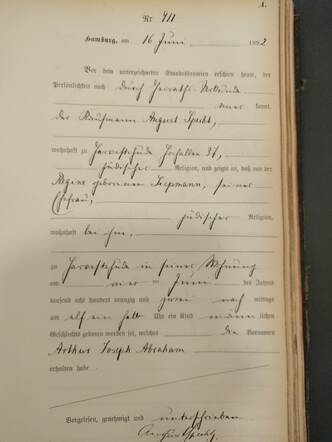 A.
Nr. 911
Hamburg, am 16 Juni 1892
Vor dem unterzeichneten Standesbeamten erschien heute, der
Persönlichkeit nach durch Heiraths Urkunde
kannt,
der Kaufmann August Specht,
wohnhaft zu Harvestehude Hochallee 37,
jüdischer Religion, und zeigte an, daß von der
Regine geborenen Liepmann, seiner
Ehefrau,
jüdischer Religion,
wohnhaft bei ihm,
zu Harvestehude in seiner Wohnung
am vier ten Juni des Jahres
tausend acht hundert neunzig und zwei nach mittags
um elf ein halb Uhr ein Kind männ lichen
Geschlechts geboren worden sei, welches die Vornamen
Arthur Joseph Abraham
erhalten habe
Vorgelesen, genehmigt und unterschrieben
August Specht